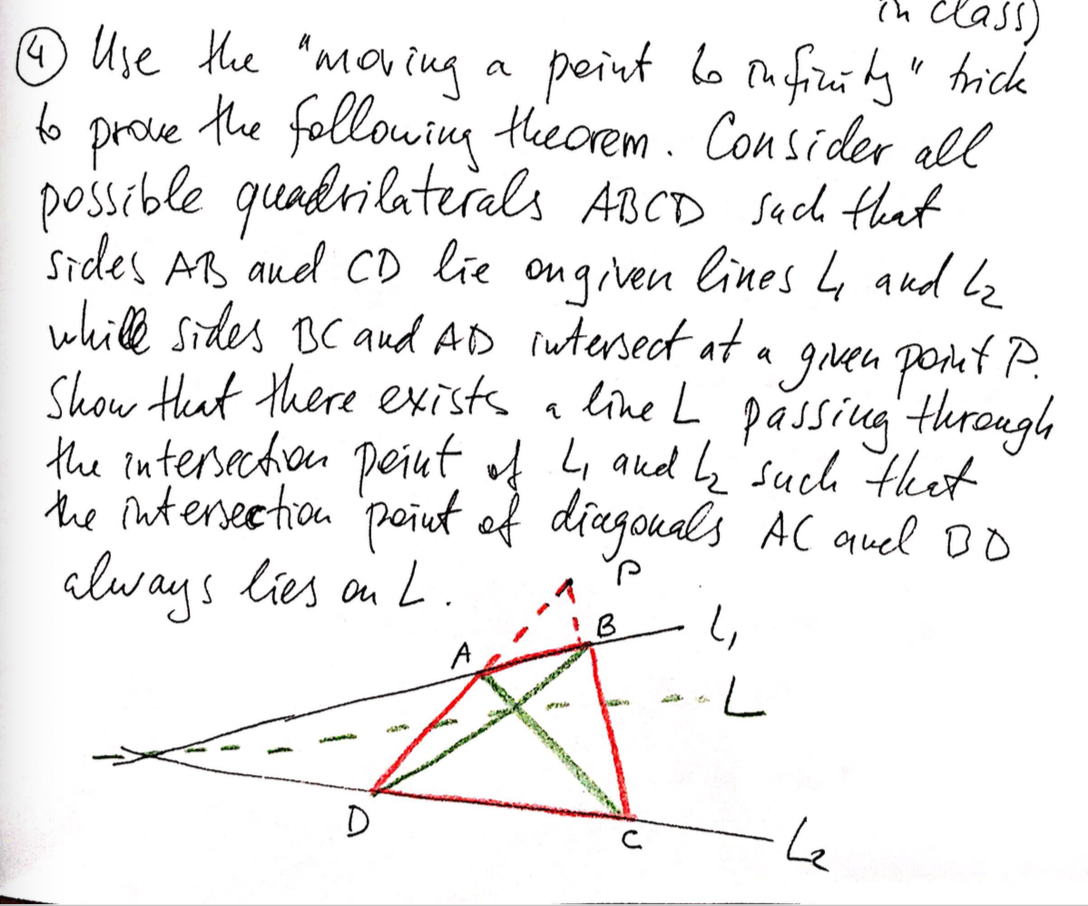 in class)
④ Use the "moving a point to infinity" trick
to prove the following theorem. Consider all
possible quadrilaterals ABCD such that
sides AB and CD lie on given lines L₁ and L₂
while sides BC and AD intersect at a given point P.
Show that there exists a line L passing through
the intersection point of L₁ and L₂ such that
the intersection point of diagonals AC and BD
always lies on L.
P
B
L₁
A
L
D
C
L₂